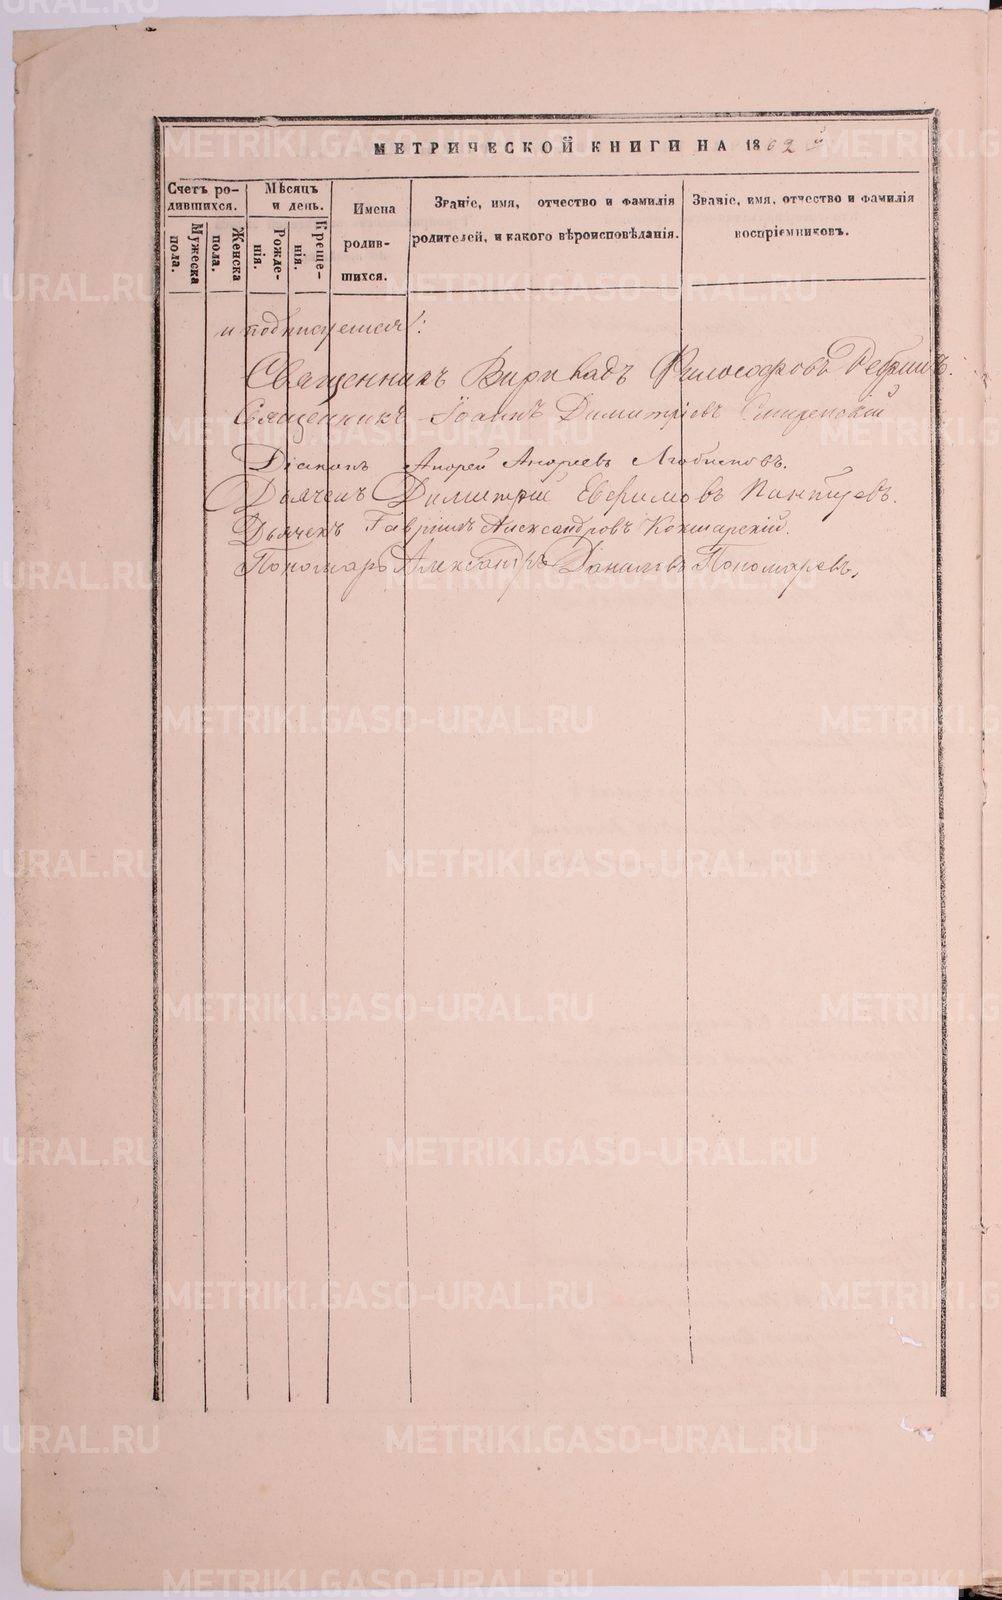 МЕТРИЧЕСКОЙ КНИГИ НА 1862 й
Счетъ ро-
дившихся.
Мужеска
пола.
Женска
пола.
Мѣсяцъ
и день.
Рожде-
нія.
Креще-
нія.
Имена
родив-
шихся.
Званіе, имя, отчество и фамилія
родителей, и какого вѣроисповѣданія.
Званіе, имя, отчество и фамилія
воспріемниковъ.
и подписуемся:
Священникъ Философовъ
Священникъ Іоаннъ Димитріевъ
Діаконъ Андрей Андреевъ
Дьячекъ Димитрій Евфимовъ
Дьячекъ Гавріилъ Александровъ Кокшарскій.
Пономарь Александръ Даниловъ Пономаревъ.
METRIKI.GASO-URAL.RU